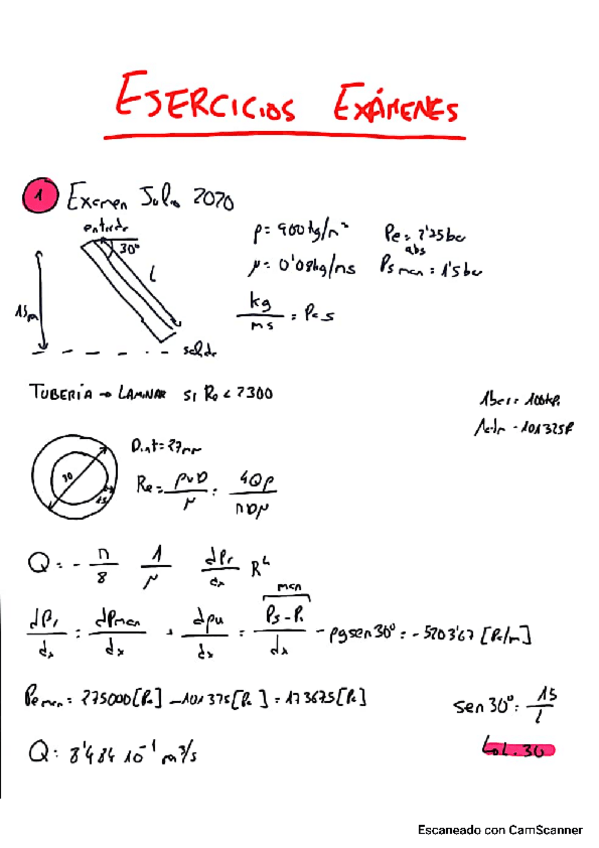 EJERCICIOS EXÁMENES
1 Examen Julio 2020
entrada
30º
L
15m
salida
ρ = 900 kg/m³ Pe = 2'25 bar
abs
μ = 0'08 kg/ms Ps man = 1'5 bar
kg/ms = Pa s
TUBERÍA → LAMINAR SI Re < 2300
1bar = 100kPa
1atm = 101325P
30
1'5
D.int = 27mm
Re = ρvD/μ = 4Qρ/πDμ
Q = - π/8 1/μ dPr/dx R⁴
man
dPr/dx = dPman/dx + dpu/dx = Ps - Pe/dx - ρg sen 30º = - 5203'67 [Pa/m]
Pe man = 275000 [Pa] - 101325 [Pa] = 173675 [Pa]
sen 30º = 15/L
Q = 8'484 10⁻¹ m³/s
L = 30
Escaneado con CamScanner